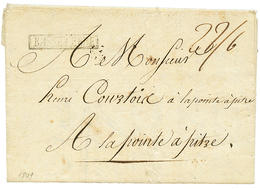 A Monsieur
henri Courtois à la pointe à pitre
A la pointe à pitre.